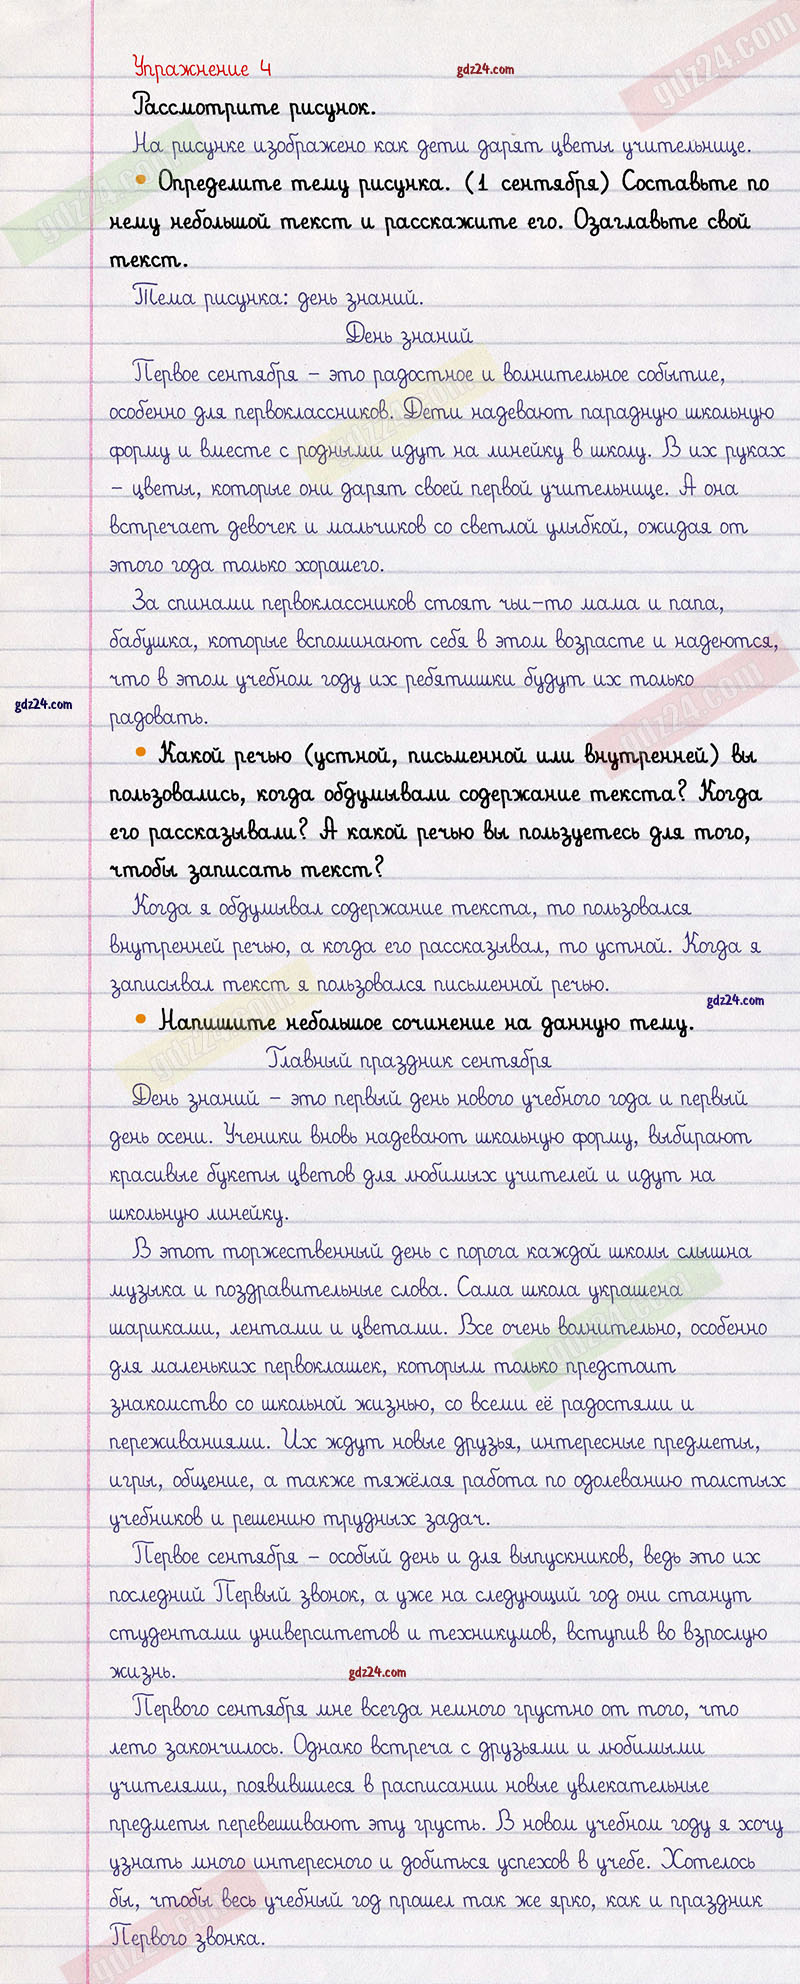 Упражнение 4
gdz24.com
gdz24.com
Рассмотрите рисунок.
На рисунке изображено как дети дарят цветы учительнице.
gdz24.com
• Определите тему рисунка. (1 сентября) Составьте по
нему небольшой текст и расскажите его. Озаглавьте свой
текст.
Тема рисунка: день знаний.
День знаний
Первое сентября – это радостное и волнительное событие,
особенно для первоклассников. Дети надевают парадную школьную
gdz24.com
форму и вместе с родными идут на линейку в школу. В их руках
– цветы, которые они дарят своей первой учительнице. А она
встречает девочек и мальчиков со светлой улыбкой, ожидая от
этого года только хорошего.
За спинами первоклассников стоят чьи-то мама и папа,
бабушка, которые вспоминают себя в этом возрасте и надеются,
что в этом учебном году их ребятишки будут их только
gdz24.com
gdz24.com
радовать.
• Какой речью (устной, письменной или внутренней) вы
пользовались, когда обдумывали содержание текста? Когда
его рассказывали? А какой речью вы пользуетесь для того,
чтобы записать текст?
Когда я обдумывал содержание текста, то пользовался
внутренней речью, а когда его рассказывал, то устной. Когда я
записывал текст я пользовался письменной речью.
gdz24.com
• Напишите небольшое сочинение на данную тему.
gdz24.com
Главный праздник сентября
День знаний – это первый день нового учебного года и первый
день осени. Ученики вновь надевают школьную форму, выбирают
красивые букеты цветов для любимых учителей и идут на
школьную линейку.
В этот торжественный день с порога каждой школы слышна
музыка и поздравительные слова. Сама школа украшена
шариками, лентами и цветами. Все очень волнительно, особенно
gdz24.com
для маленьких первоклашек, которым только предстоит
знакомство со школьной жизнью, со всеми её радостями и
переживаниями. Их ждут новые друзья, интересные предметы,
игры, общение, а также тяжёлая работа по одолеванию толстых
учебников и решению трудных задач.
Первое сентября – особый день и для выпускников, ведь это их
последний Первый звонок, а уже на следующий год они станут
студентами университетов и техникумов, вступив во взрослую
жизнь.
gdz24.com
Первого сентября мне всегда немного грустно от того, что
лето закончилось. Однако встреча с друзьями и любимыми
учителями, появившиеся в расписании новые увлекательные
предметы перевешивают эту грусть. В новом учебном году я хочу
узнать много интересного и добиться успехов в учебе. Хотелось
бы, чтобы весь учебный год прошел так же ярко, как и праздник
Первого звонка.
gdz24.com